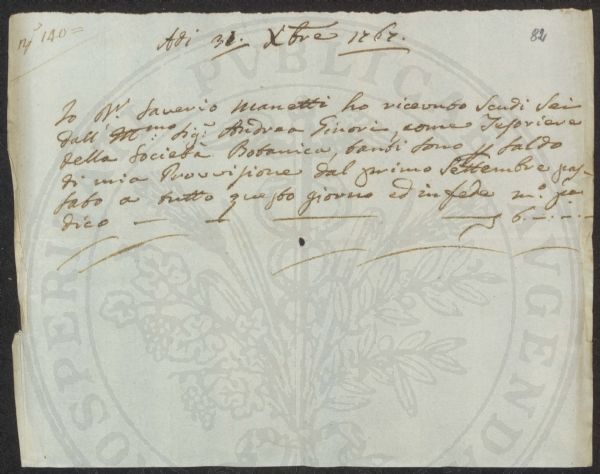 N.º 140 =
82
Adi 31. Xbre 1767.
Io Dr. Saverio Manetti ho ricevuto Scudi Sei
dall' Ill.mo Sig.r Andrea Ginori, come Tesoriere
della Società Botanica, tanti sono p saldo
di mia Provvisione dal primo Settembre pas-
sato a tutto questo giorno ed in fede m.o p.a
dico — — — 6 -.-.-
PUBLICAE
PROSPERITATI
AUGENDAE